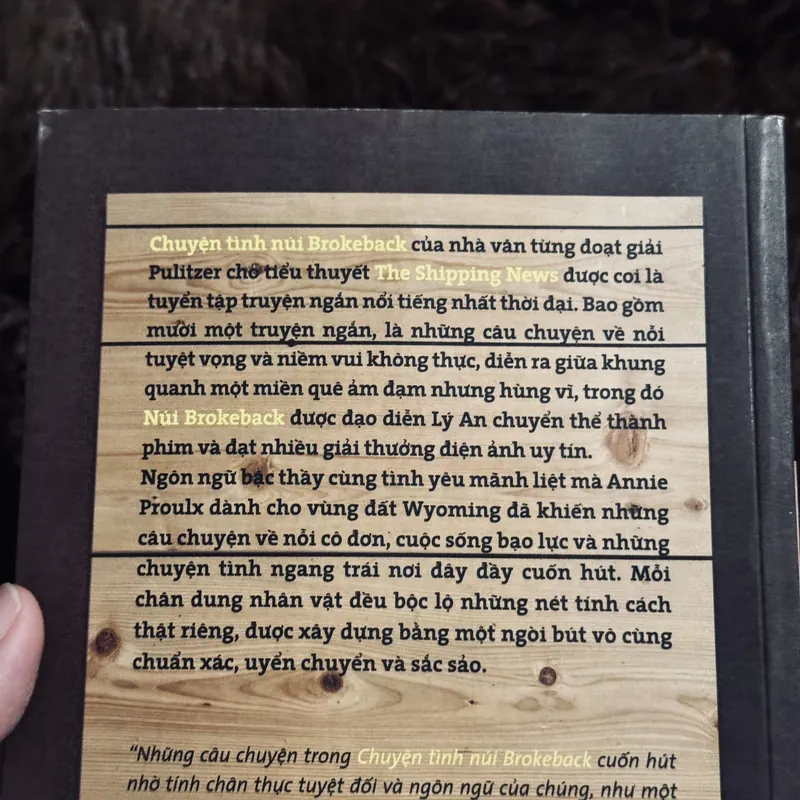 Chuyện tình núi Brokeback của nhà văn từng đoạt giải
Pulitzer chơ tiểu thuyết The Shipping News được coi là
tuyển tập truyện ngắn nổi tiếng nhất thời đại. Bao gồm
mười một truyện ngắn, là những câu chuyện về nỗi
tuyệt vọng và niềm vui không thực, diễn ra giữa khung
quanh một miền quê ảm đạm nhưng hùng vĩ, trong đó
Núi Brokeback được đạo diễn Lý An chuyển thể thành
phim và đạt nhiều giải thưởng điện ảnh uy tín.
Ngôn ngữ bậc thầy cùng tình yêu mãnh liệt mà Annie
Proulx dành cho vùng đất Wyoming đã khiến những
câu chuyện về nỗi cô đơn, cuộc sống bạo lực và những
chuyện tình ngang trái nơi đây đầy cuốn hút. Mỗi
chân dung nhân vật đều bộc lộ những nét tính cách
thật riêng, được xây dựng bằng một ngòi bút vô cùng
chuẩn xác, uyển chuyển và sắc sảo.
“Những câu chuyện trong Chuyện tình núi Brokeback cuốn hút
nhờ tính chân thực tuyệt đối và ngôn ngữ của chúng, như một